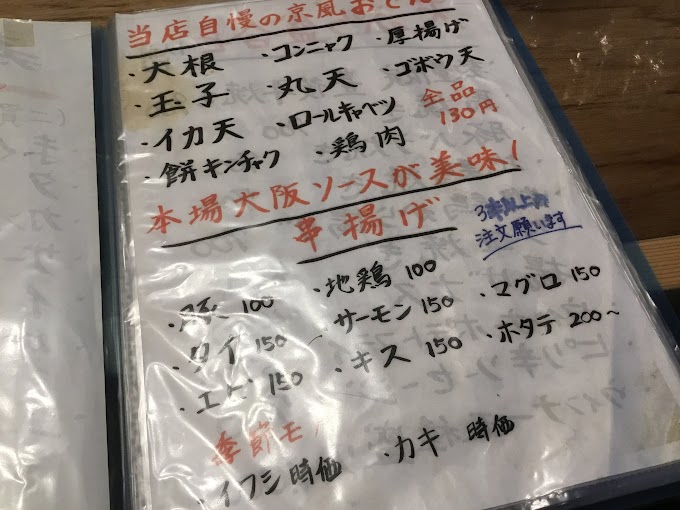 当店自慢の京風おでん
・大根 ・コンニャク ・厚揚げ
・玉子 ・丸天 ・ゴボウ天
・イカ天 ・ロールキャベツ 全品
・餅キンチャク ・鶏肉 130円
本場大阪ソースが美味!
串揚げ
3本以上の
注文願います
・豚 100 ・地鶏 100
・タイ 150 ・サーモン 150 ・マグロ 150
・エビ 150 ・キス 150 ・ホタテ 200～
季節モノ
・イワシ 時価 ・カキ 時価